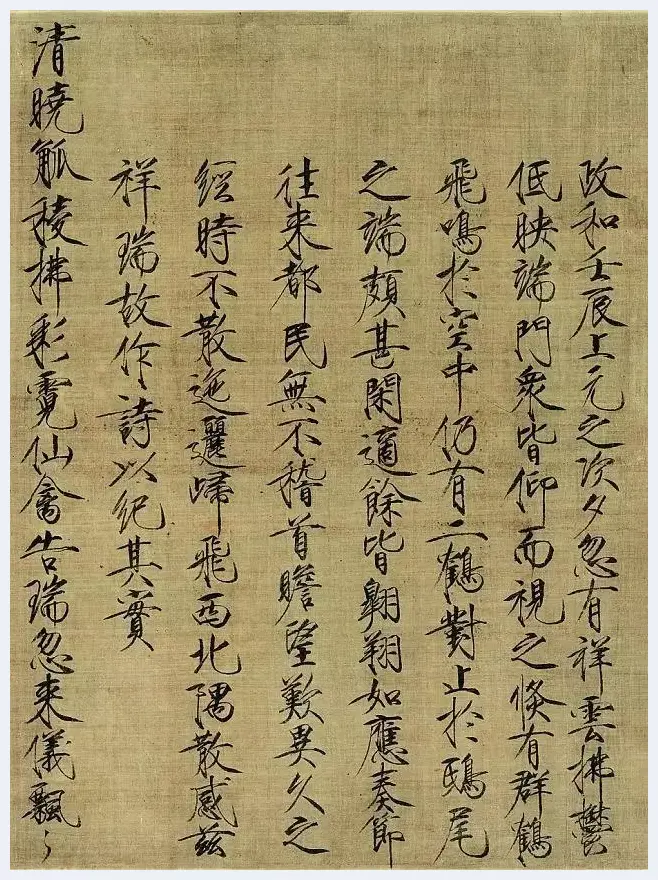 政和壬辰上元之次夕忽有祥雲拂鬱
低映端門衆皆仰而視之倏有群鶴
飛鳴於空中仍有二鶴對止於鴟尾
之端頗甚閑適餘皆翱翔如應奏節
往來都民無不稽首瞻望歎異久之
經時不散迤邐歸飛西北隅散感茲
祥瑞故作詩以紀其實
清曉觚稜拂彩霓仙禽告瑞忽來儀飄〻